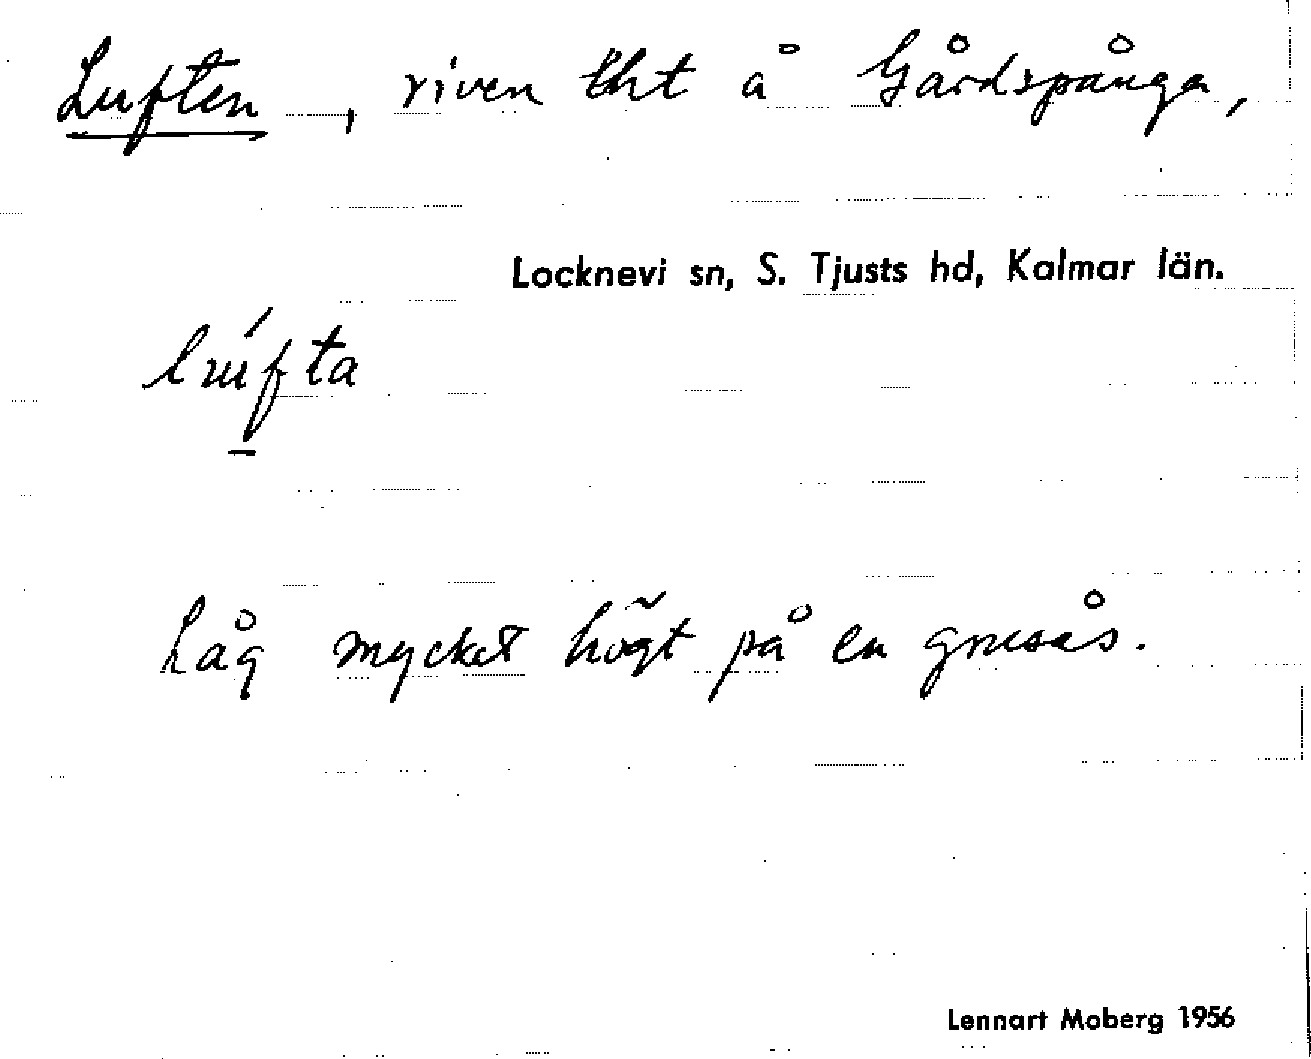 Luften, riven lht å Gårdspånga,
Locknevi sn, S. Tjusts hd, Kalmar län.
lúfta
Låg mycket högt på en grusås.
Lennart Moberg 1956